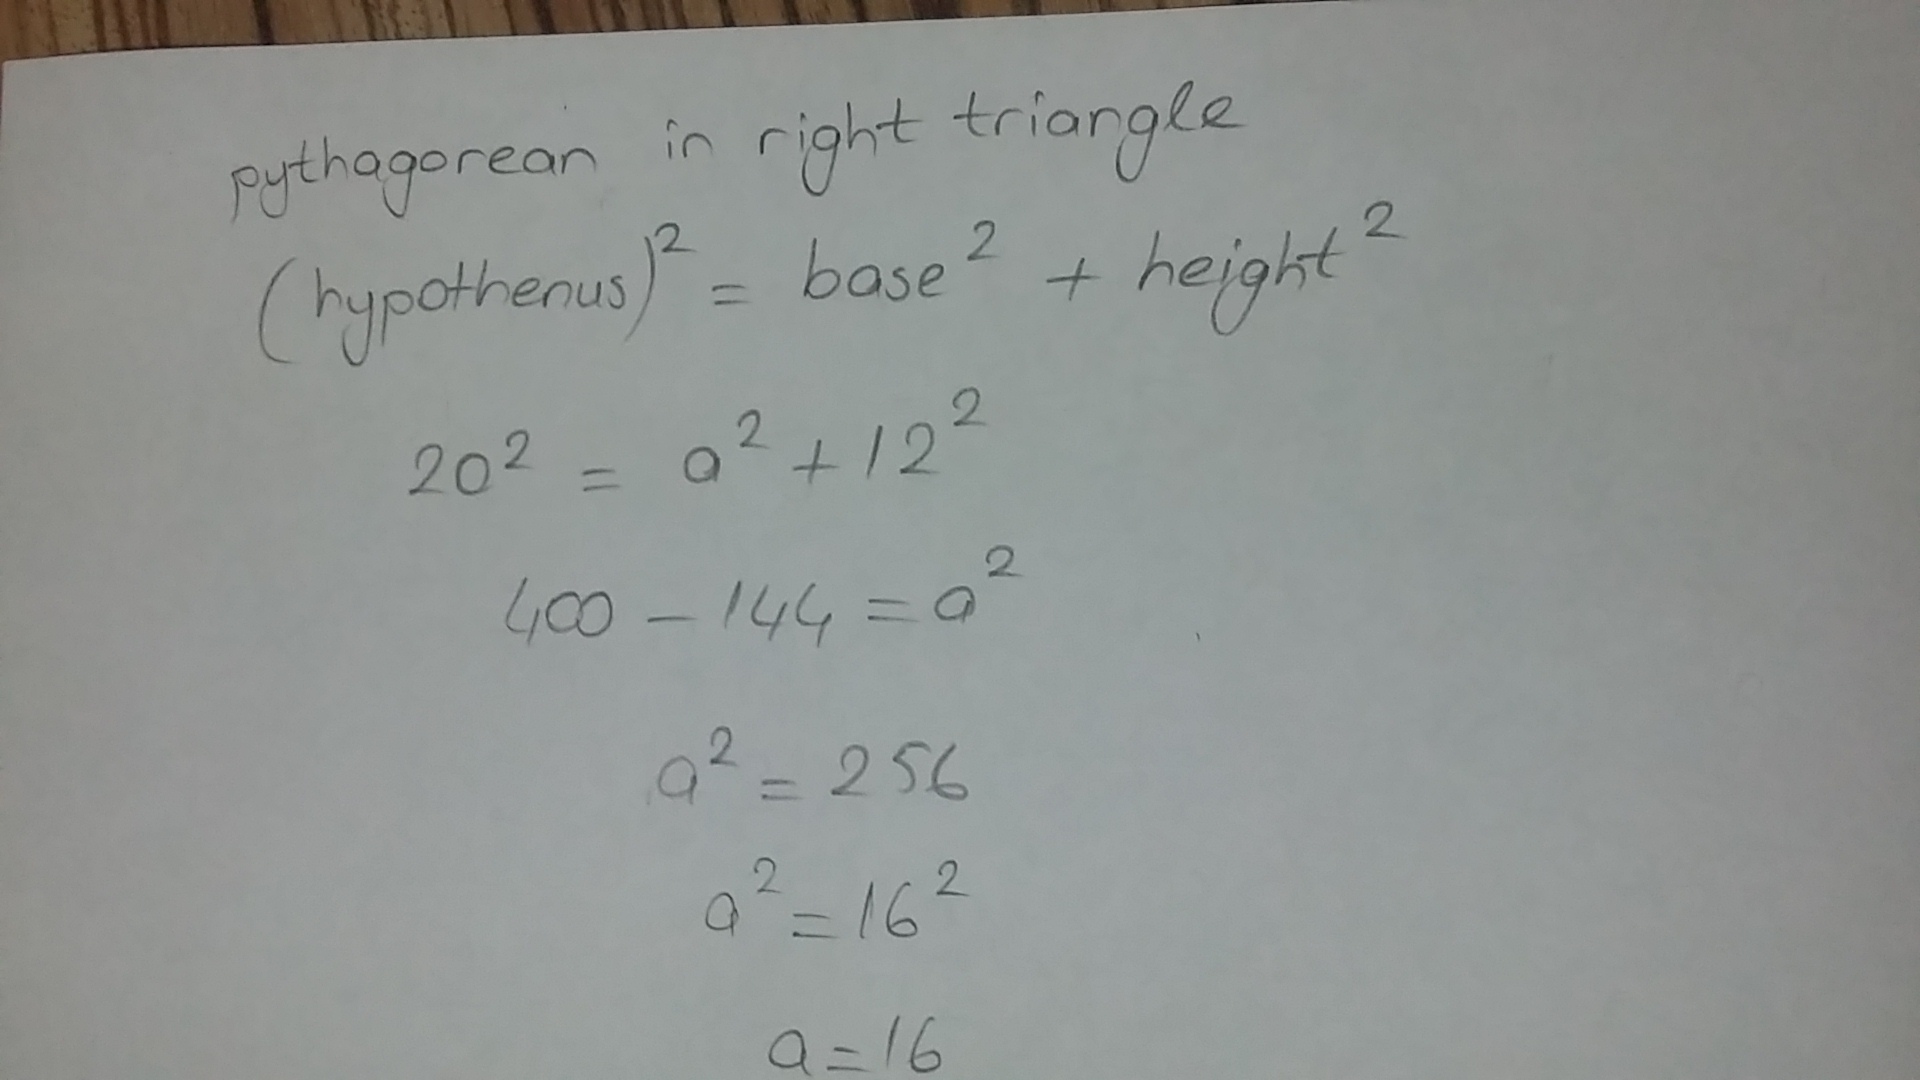 pythagorean in right triangle
(hypothenus)² = base² + height²
20² = a² + 12²
400 – 144 = a²
a² = 256
a² = 16²
a = 16